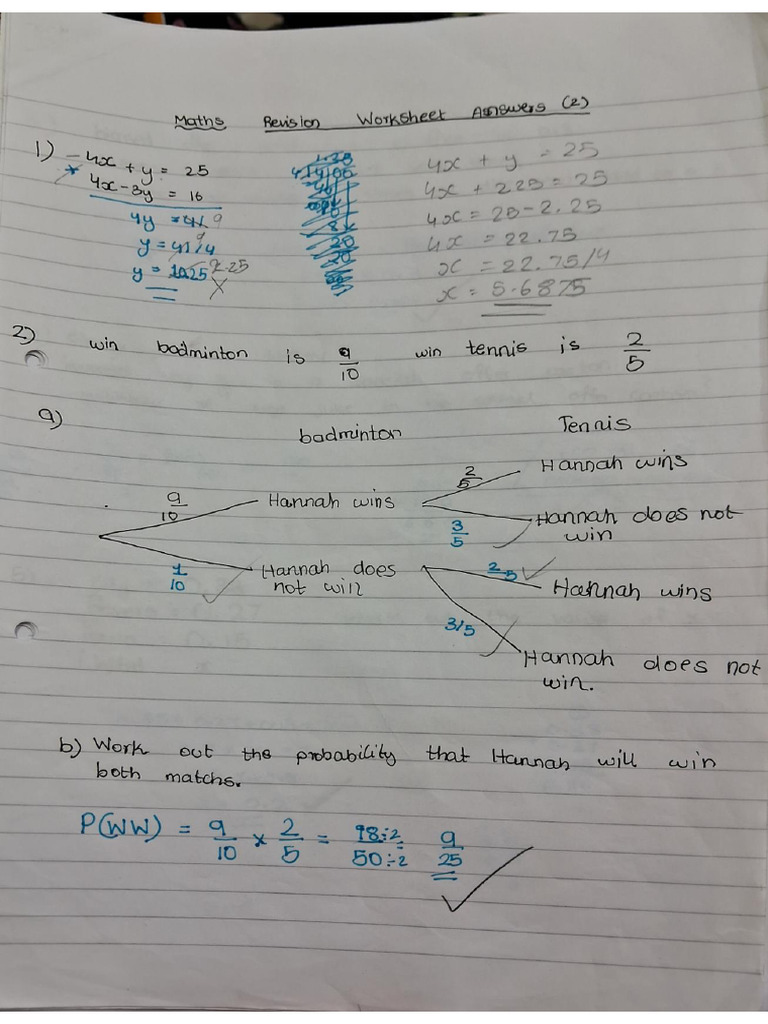 Maths Revision Worksheet Answers (2)
1) - 4x + y = 25
4x - 3y = 16
4y = 9
y = 9/4
y = 2.25
4x + y = 25
4x + 2.25 = 25
4x = 25 - 2.25
4x = 22.75
x = 22.75/4
x = 5.6875
2) win badminton is 9/10 win tennis is 2/5
a)
badminton Tennis
9/10 Hannah wins 2/5 Hannah wins
3/5 Hannah does not win
1/10 Hannah does not win 2/5 Hannah wins
3/5 Hannah does not win.
b) Work out the probability that Hannah will win
both matchs.
P(WW) = 9/10 × 2/5 = 18÷2/50÷2 = 9/25